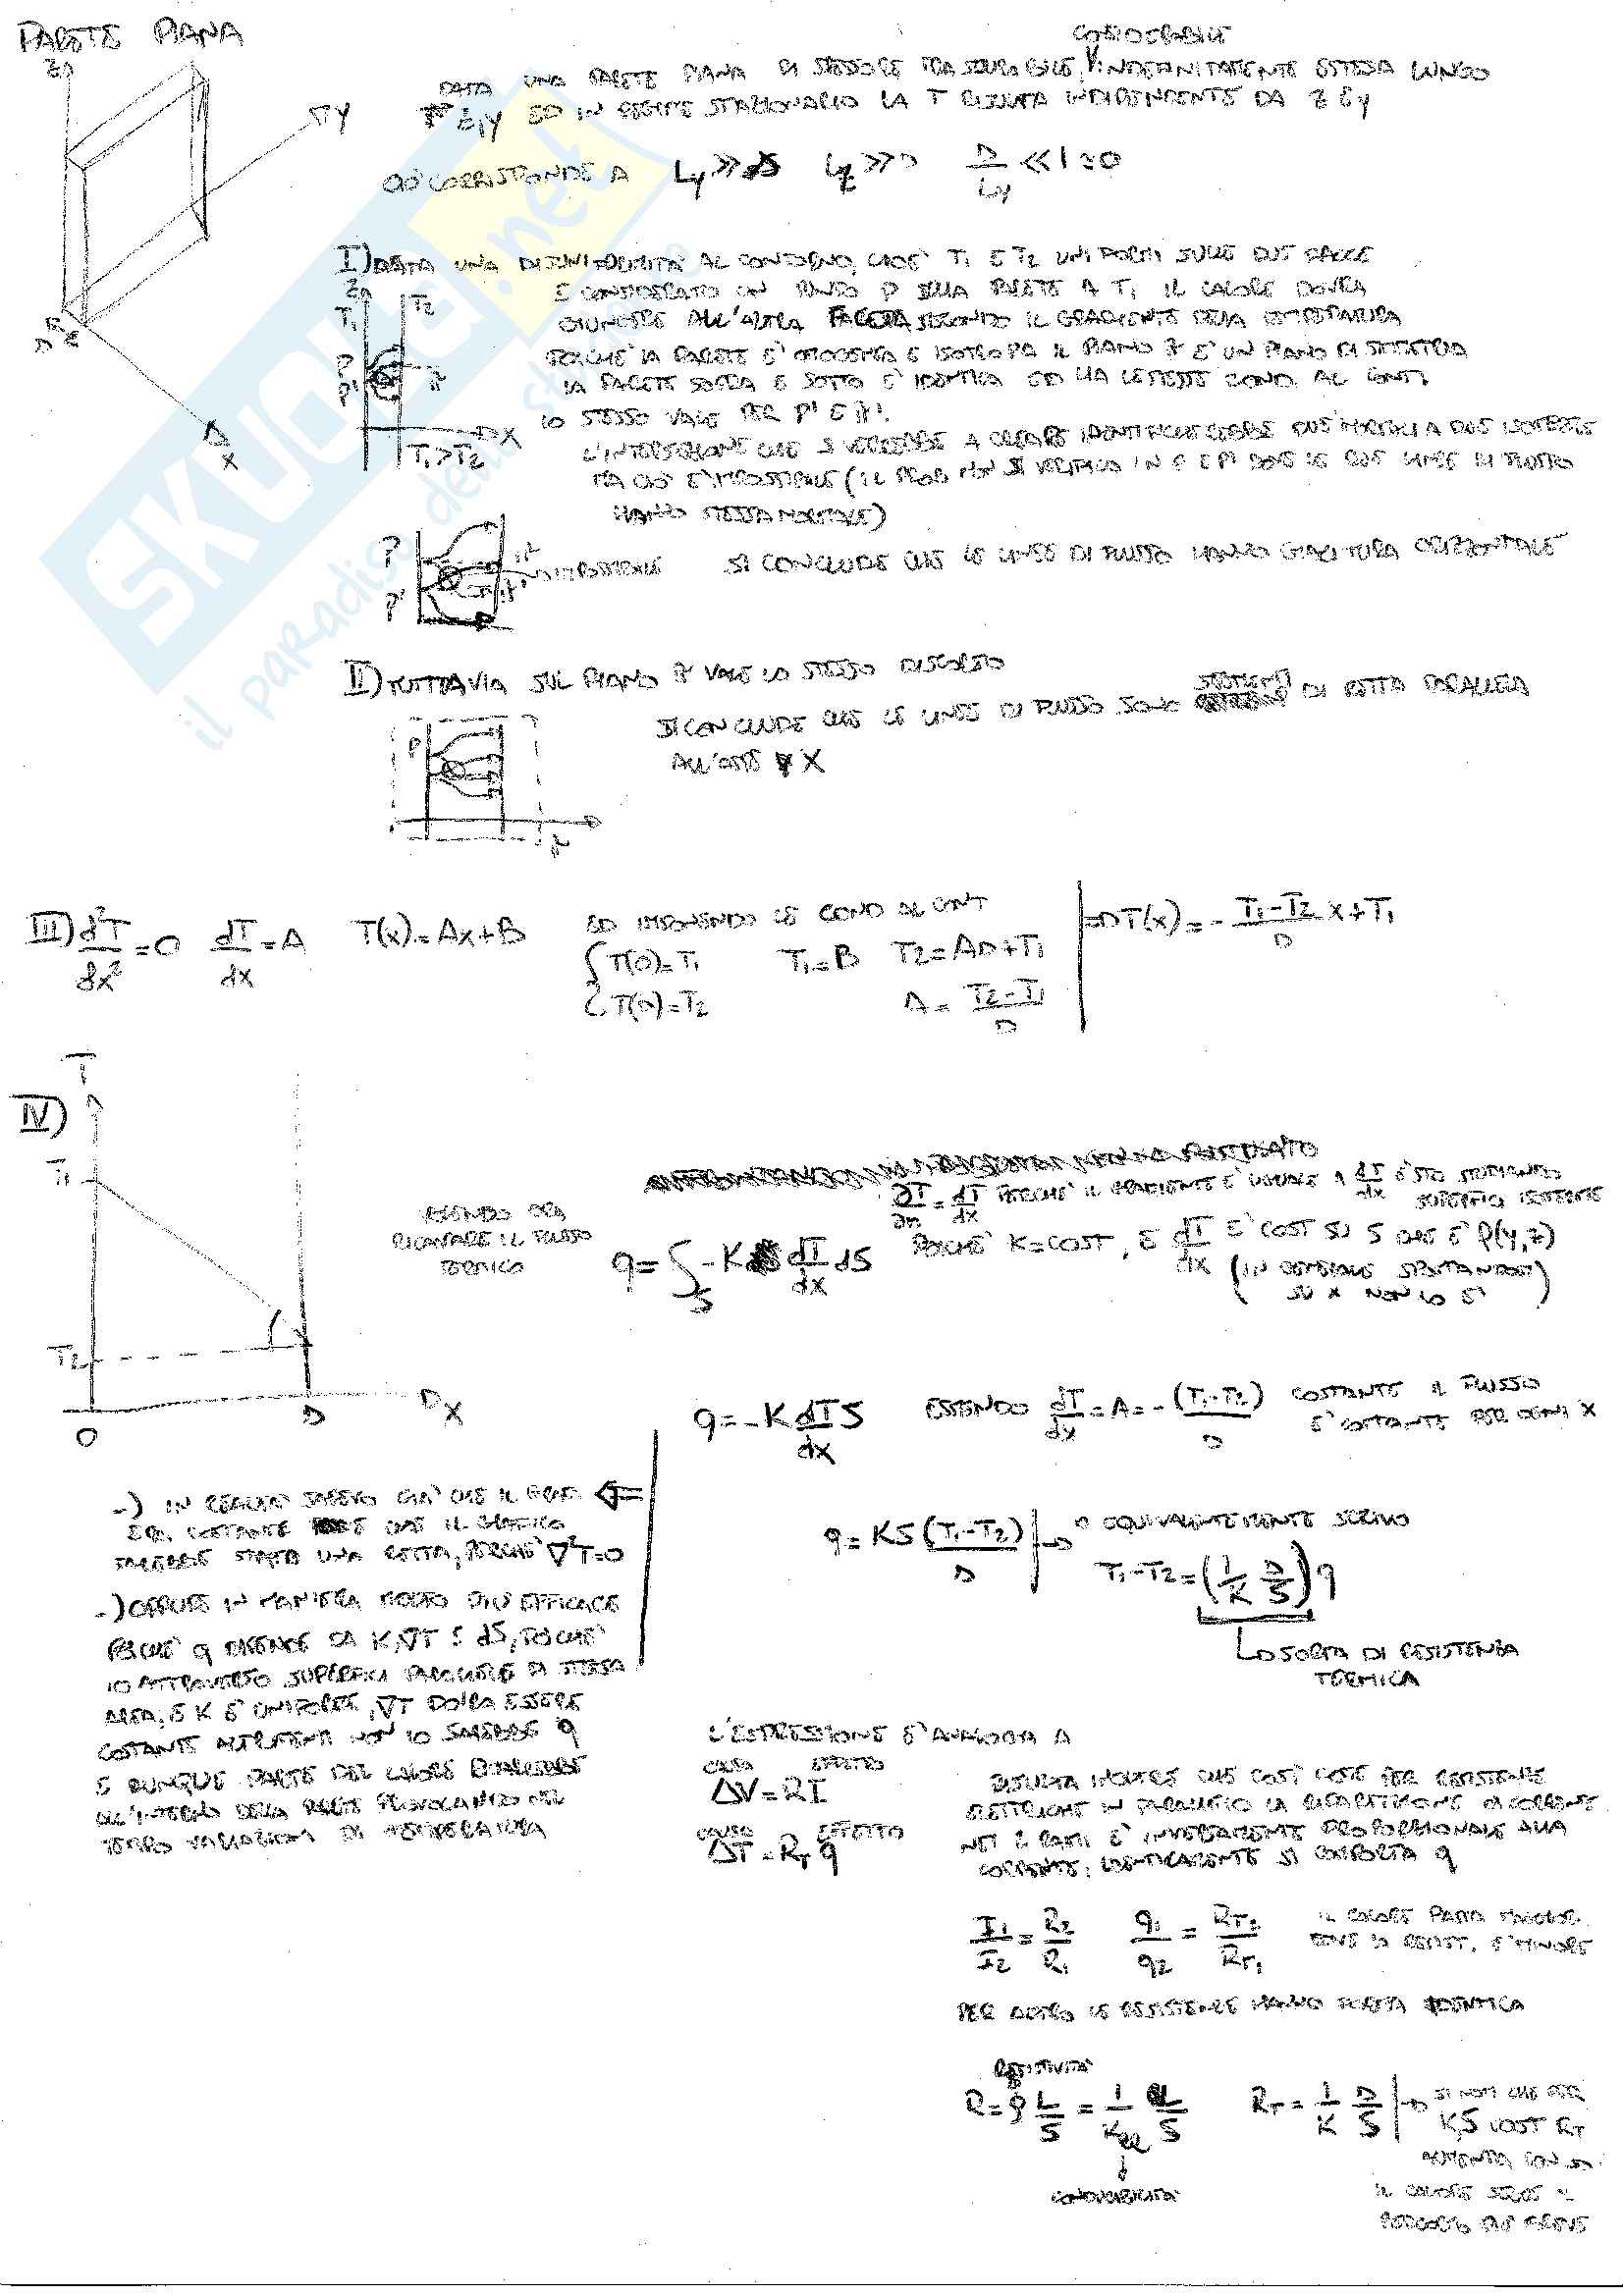 PARETE PIANA
CONOSCIBILE
DATA UNA PARETE PIANA DI SPESSORE TRASCURABILE, INDEFINITAMENTE ESTESA LUNGO
z, y ED IN REGIME STAZIONARIO LA T RISULTA INDIPENDENTE DA z E y
CIÒ CORRISPONDE A Ly >> D Lz >> D D/Ly << 1 ≅ 0
z
y
x
I) DATA UNA DISUNIFORMITÀ AL CONTORNO, CIOÈ T1 E T2 UNIFORMI SULLE DUE FACCE
E CONSIDERATO UN PUNTO P DELLA PARETE A T1 IL CALORE DOVRÀ
GIUNGERE ALL'ALTRA FACCIA SECONDO IL GRADIENTE DELLA TEMPERATURA
POICHÈ LA PARETE E' OMOGENEA E ISOTROPA IL PIANO π E' UN PIANO DI SIMMETRIA
LA PARETE SOPRA E SOTTO E' IDENTICA ED HA LE STESSE COND. AL CONT.
LO STESSO VALE PER P' E π'.
L'INTERSEZIONE CHE SI VERREBBE A CREARE DUE NORMALI A DUE ISOTERME
MA CIÒ E' IMPOSSIBILE (IL PROB NON SI VERIFICA IN P E P' DOVE LE DUE LINEE DI FLUSSO
HANNO STESSA NORMALE)
z
T1 T2
P
P'
x
T1>T2
P
P'
IMPOSSIBILE
SI CONCLUDE CHE LE LINEE DI FLUSSO HANNO GIACITURA ORIZZONTALE
II) TUTTAVIA SUL PIANO π VALE LO STESSO DISCORSO
SI CONCLUDE CHE LE LINEE DI FLUSSO SONO SEGMENTI DI RETTA PARALLELA
ALL'ASSE X
P
III) d²T/dx² = 0 dT/dx = A T(x) = Ax+B ED IMPONENDO LE COND AL CONT
T(0)=T1 T1=B T2=AD+T1
T(D)=T2 A = T2-T1/D
T(x) = - T1-T2/D x+T1
IV)
T
T1
T2
O
D
x
ESSENDO ORA
RICAVARE IL FLUSSO
TERMICO
∂T/∂n = dT/dx PERCHÈ IL GRADIENTE E' UGUALE A dT/dx E STO STUDIANDO
SUPERFICI ISOTERME
q = ∫S -K dT/dx dS POICHÈ K=COST, E dT/dx E' COST SU S CHE E' f(y,z)
SU X NON LO E')
q = -K dT/dx S ESSENDO dT/dx = A = -(T1-T2)/D COSTANTE IL FLUSSO
E' COSTANTE PER OGNI X
q = KS (T1-T2)/D → O EQUIVALENTEMENTE SCRIVO
T1-T2 = (1/K D/S) q
SORTA DI RESISTENZA
TERMICA
-) IN REALTÀ SAPEVO GIÀ CHE IL GRAD.
ERA COSTANTE CHE IL GRAFICO
SAREBBE STATO UNA RETTA, PERCHÈ ∇²T=0
-) OPPURE IN MANIERA MOLTO PIÙ EFFICACE
POICHÈ q DIPENDE DA K, ∇T E dS, POICHÈ
IO ATTRAVERSO SUPERFICI PARALLELE DI STESSA
AREA, E K E' UNIFORME, ∇T DOVRÀ ESSERE
COSTANTE ALTRIMENTI NON LO SAREBBE q
E DUNQUE PARTE DEL CALORE
ALL'INTERNO DELLA PARETE PROVOCANDO NEL
TEMPO VARIAZIONI DI TEMPERATURA
L'ESPRESSIONE E' ANALOGA A
CAUSA EFFETTO
ΔV = RI
CAUSA EFFETTO
ΔT = RT q
RISULTA INOLTRE CHE COSÌ COME PER RESISTENZE
ELETTRICHE IN PARALLELO LA RIPARTIZIONE DI CORRENTE
NEI 2 RAMI E' INVERSAMENTE PROPORZIONALE ALLA
CORRENTE, IDENTICAMENTE SI COMPORTA q
I1/I2 = R2/R1 q1/q2 = RT2/RT1
IL CALORE PASSA MAGGIOR.
DOVE LA RESIST. E' MINORE
PER ALTRO LE RESISTENZE HANNO FORMA IDENTICA
RESISTIVITÀ
R = ρ L/S = 1/Kel L/S RT = 1/K D/S → SI NOTI CHE PER
K,S COST RT
AUMENTA CON D.
CONDUCIBILITÀ
IL CALORE SEGUE IL
PERCORSO PIÙ BREVE
SKUOLA.net
il paradiso dello studente